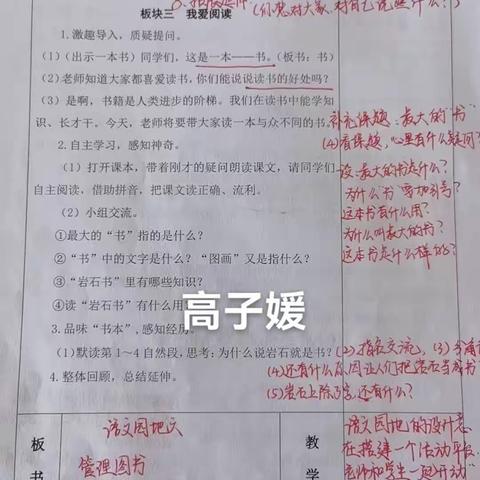 板块三 我爱阅读
1.激趣导入，质疑提问。
(1)（出示一本书）同学们，这是一本——书。（板书：书）
(2)老师知道大家都喜爱读书，你们能说说读书的好处吗？
(3)是啊，书籍是人类进步的阶梯。我们在读书中能学知
识、长才干。今天，老师将要带大家读一本与众不同的书。
补充课题：最大的"书"
(4)看课题，心里有什么疑问？
2.自主学习，感知神奇。
(1)打开课本，带着刚才的疑问朗读课文，请同学们
自主阅读，借助拼音，把课文读正确、流利。
最大的书是什么？
为什么"书"要加引号？
这本书有什么用？
为什么叫最大的书？
这本书是什么样的？
(2)小组交流。
①最大的"书"指的是什么？
②"书"中的文字是什么？"图画"又是指什么？
③"岩石书"里有哪些知识？
④读"岩石书"有什么用
高子媛
3.品味"书本"，感知经历。
(1)默读第1～4自然段，思考：为什么说岩石就是书？
(2)指名交流，(3)
4.整体回顾，总结延伸。
(4)还有什么
(5)岩石上除了
还有什么？
板
书
语文园地六
管理图书
教
学
语文园地的设计意
在搭建一个活动平台，
老师和学生一起开动